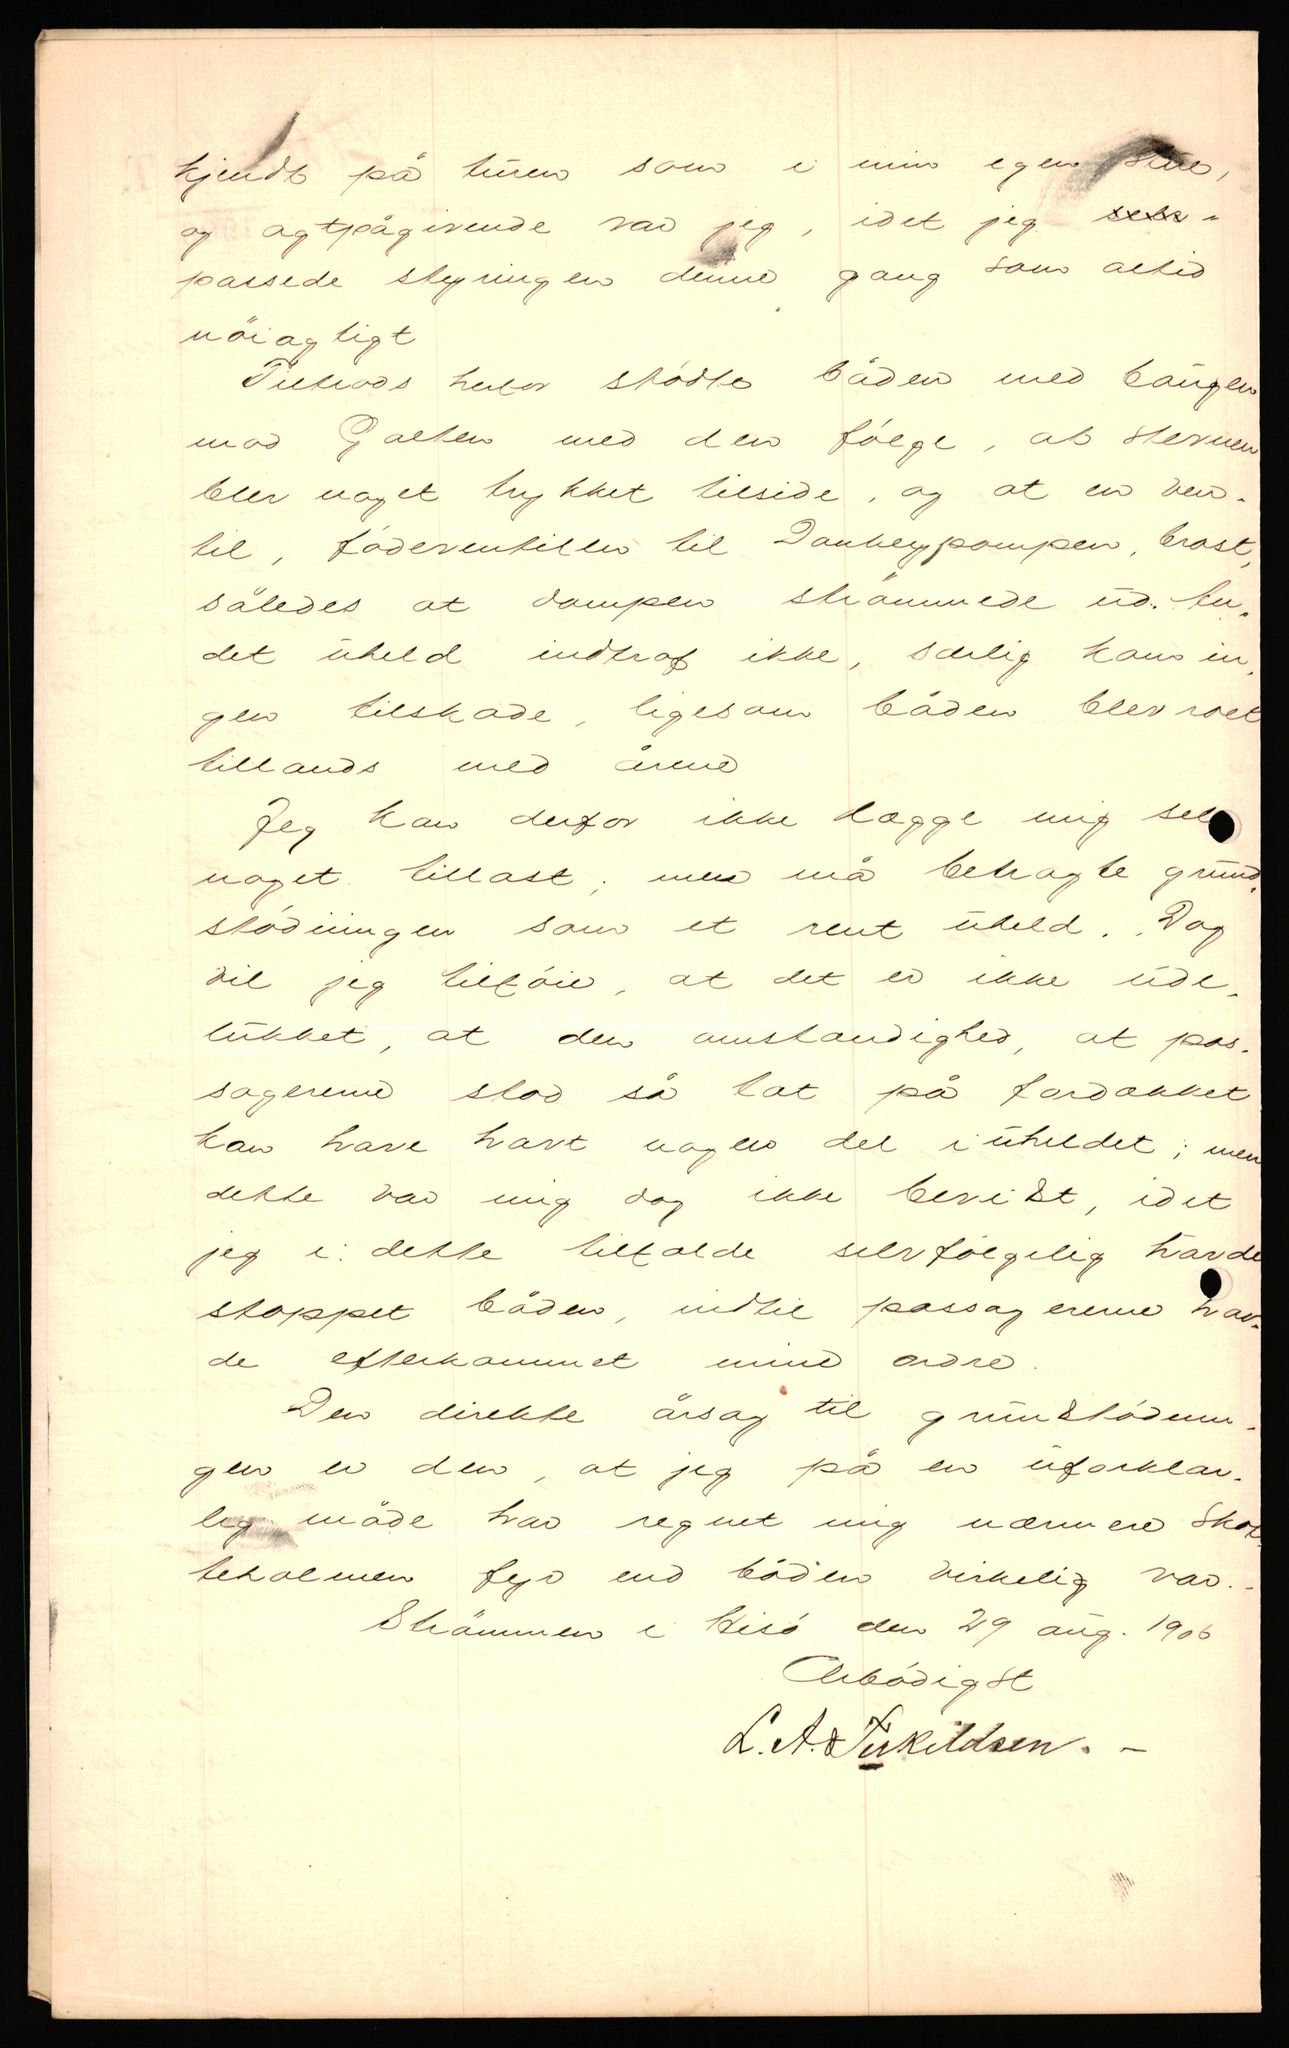 kjendt på turen som i min egen stue,
og agtpågivende var jeg, idet jeg
passede styringen denne gang som altid
nöiagligt
Tiltrods herfor stödte båden med baugen
mod Galten med den fölge, at stevnen
blev noget trykket tilside, og at en ven-
til, födeventillen til Donkeypompen, brast,
således at dampen strömmede ud. An-
det uheld indtraf ikke, særlig kom in-
gen tilskade, ligesom båden blev roet
tillands med årene
Jeg kan derfor ikke lægge mig selv
noget tillast; men må betragte grund-
stödningen som et rent uheld. Dog
vil jeg tilföie, at det er ikke ude-
lukket, at den omstændighed, at pas-
sagererne stod så tæt på fordækket
kan have havt nogen del i uheldet; men
dette var mig dog ikke bevidst, idet
jeg i dette tilfælde selvfölgelig havde
stoppet båden, indtil passagererne hav-
de efterkommet mine ordre.
Den direkte årsag til grundstödnin-
gen er den, at jeg på en uforklar-
lig måde har regnet mig nærmere Skot-
teholmen fyr end båden virkelig var.-
Strömmen i Hisö den 29 aug. 1906
Ærbödigst
L. A. Terkildsen. -